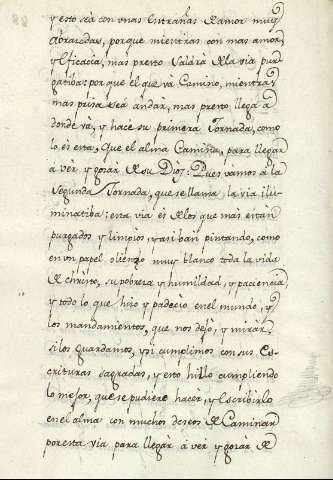 y esto sea con unas Entrañas de amor muy
abrasadas, porque mientras con mas amor,
y Eficacia, mas presto saldrá de la via pur-
gatiba: porque el que va Camino, mientras
mas prisa sea andar, mas presto llega à
donde và, y hace su primera Jornada, como
lo és esta, Que el alma Camina, para llegar
à vèr y gosar de su Diòs: Pues vamos à la
Segunda Jornada, que se llama la via ilu-
minatiba: esta via és de los que mas están
purgados y limpios, y asi ban pintando, como
en vn papel ò lienzo muy blanco toda la vida
de christo, su pobresa y humildad, y paciencia
y todo lo que hizo y padeciò en el mundo, y
los mandamientos, que nos dejò, y mirar
si los guardamos, y si cumplimos con sus Es-
crituras sagradas, y esto hillo cumpliendo
lo mejor, que se pudiere hacer, y Escribirlo
en el alma con muchos deseos de Caminar
por esta via para llegàr à vèr y gosàr de